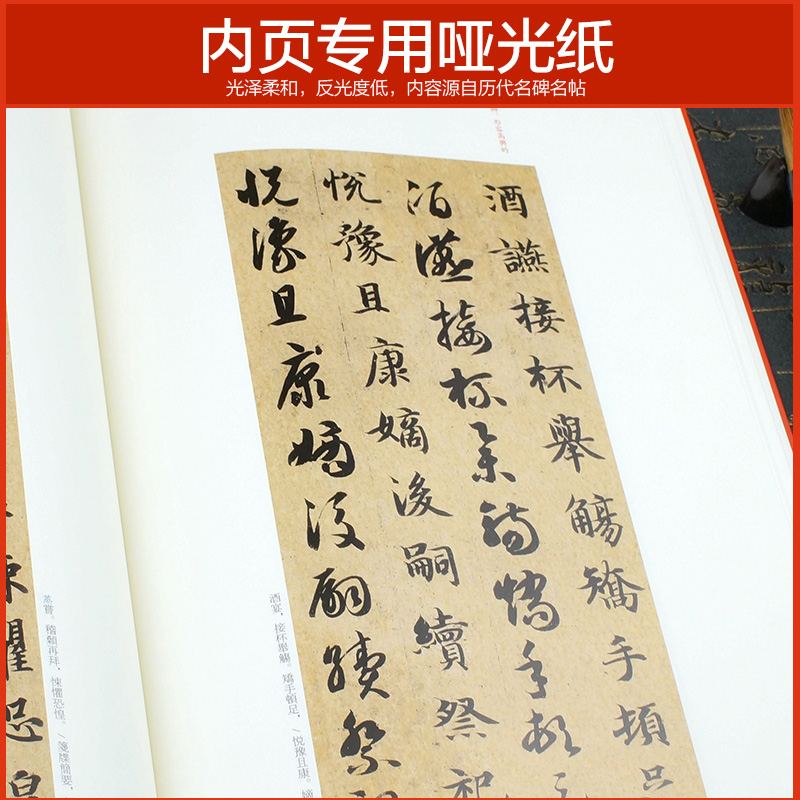 内页专用哑光纸
光泽柔和，反光度低，内容源自历代名碑名帖
形容高興的
酒讌接杯舉觴矯手頓足
酒讌接杯舉觴矯手頓足
悅豫且康嫡後嗣續祭祀
悅豫且康嫡後嗣續祭
酒宴，接杯舉觴。矯手頓足，/悅豫且康。嫡
蒸嘗。稽顙再拜，悚懼恐惶。/箋牒簡要，
悚懼恐惶